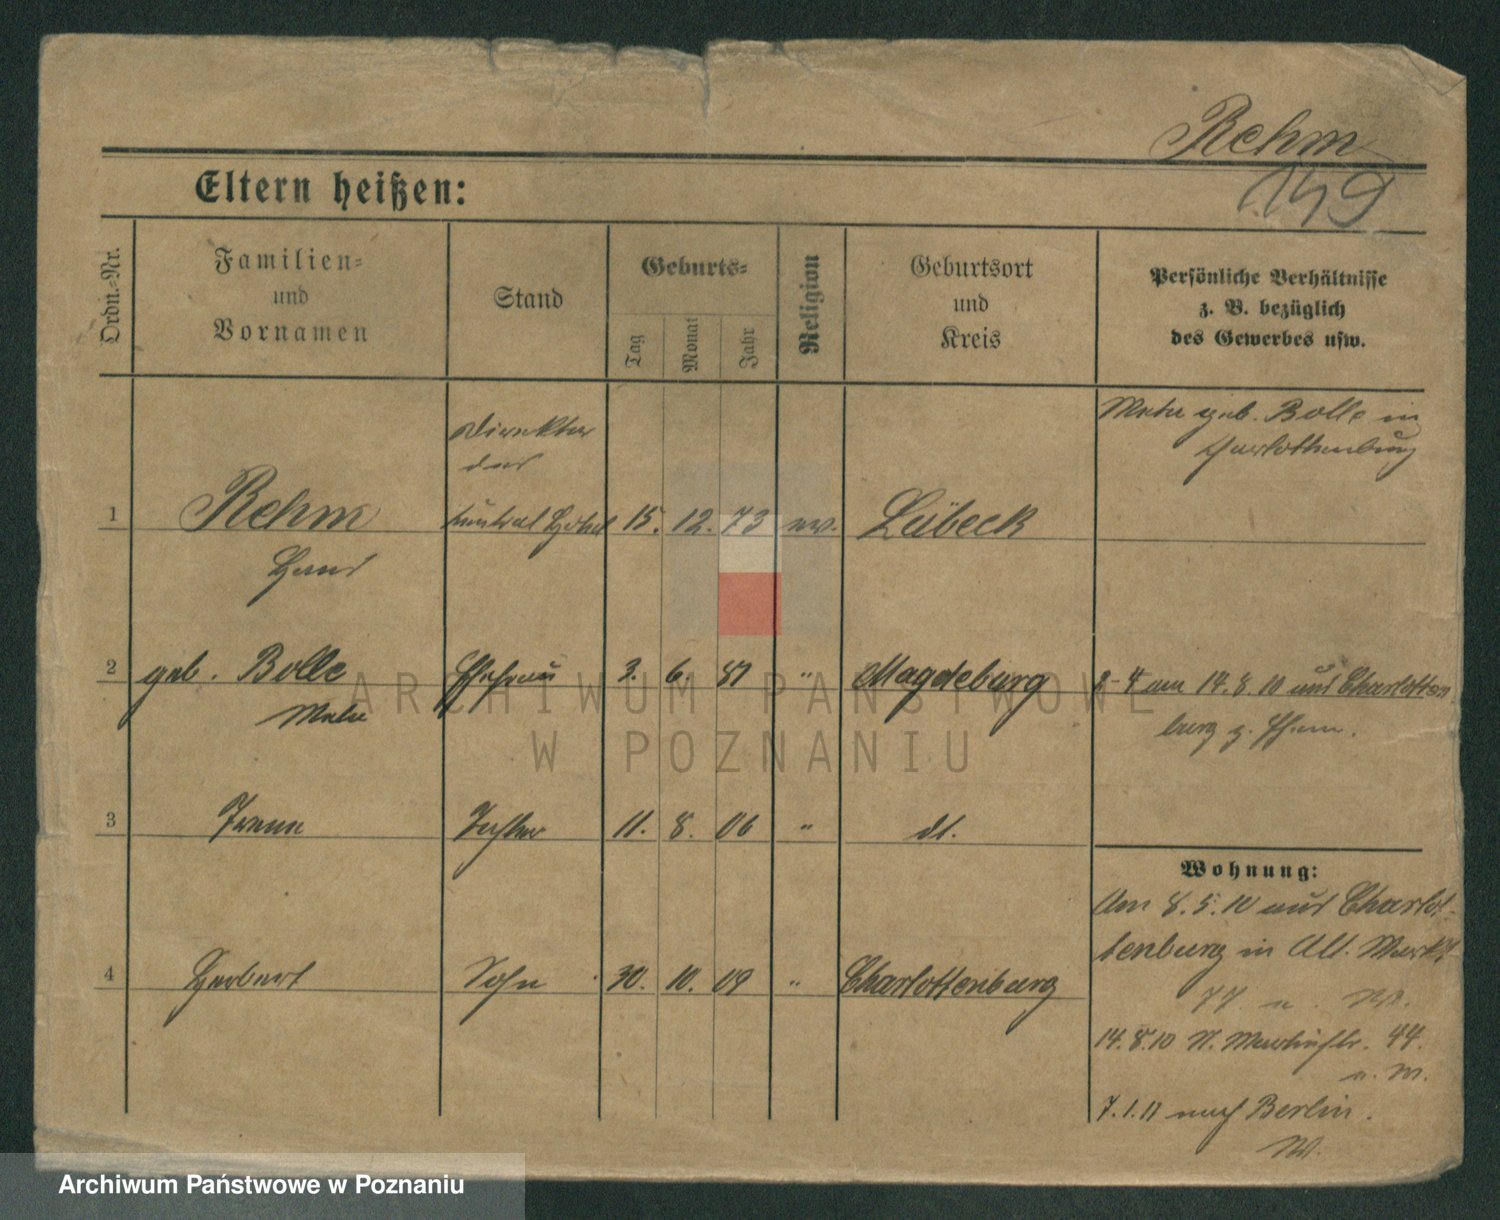 Rehm
149
Eltern heißen:
Ordn.-Nr.
Familien-
und
Vornamen
Stand
Geburts-
Tag
Monat
Jahr
Religion
Geburtsort
und
Kreis
Persönliche Verhältnisse
z. B. bezüglich
des Gewerbes usw.
geb. Bolle in
Charlottenburg
Direktor
des
1 Rehm Central Hotel 15. 12. 73 ev. Lübeck
Hans
2 geb. Bolle Ehefrau 3. 6. 81 " Magdeburg 2-4 am 14.8.10 aus Charlotten
burg z. Ehem.
3 Irene Tochter 11. 8. 06 " dt.
Wohnung:
Am 8.5.10 aus Charlot-
tenburg in Alt. Markt
77
4 Herbert Sohn 30. 10. 09 " Charlottenburg
14.8.10 N. Martinstr. 44.
7.1.11 nach Berlin.
ARCHIWUM PAŃSTWOWE
W POZNANIU
Archiwum Państwowe w Poznaniu